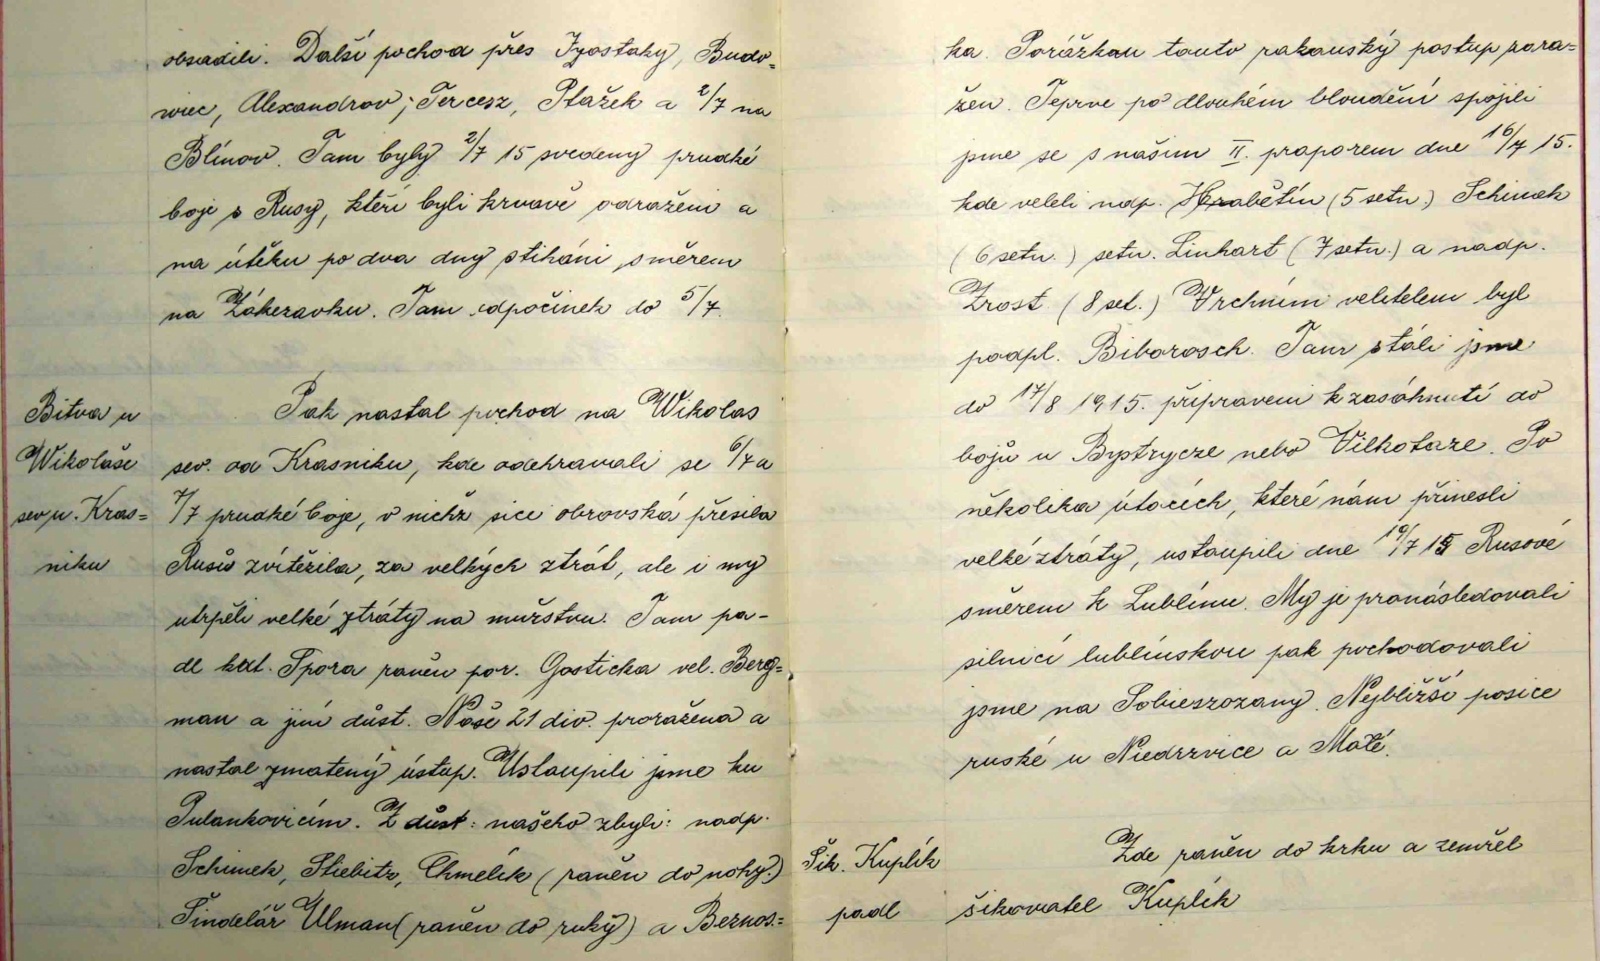 obsadili. Další pochod přes Tyostaky, Budo=
wiec, Alexandrov, Tercesz, Ptažek a 2/7 na
Blinov. Tam byly 2/7 15 svedeny prudké
boje s Rusy, kteří byli krvavě odraženi a
na útěku po dva dny stiháni směrem
na Zákeravku. Tam odpočinek do 5/7.
Bitva u
Wikolaše
sev. u. Kras=
niku
Pak nastal pochod na Wikolas
sev. od Krasniku, kde odehravali se 6/7 a
7/7 prudké boje, v nichž sice obrovská přesila
Rusů zvítězila, za velkých ztrát, ale i my
utrpěli velké ztráty na mužstvu. Tam pa-
dl kdt. Spora raněn por. Gosticka vel. Berg=
man a jiní důst. Naše 21 div. proražena a
nastal zmatený ústup. Ustoupili jme ku
Pulankovicím. Z důst: našeho zbyli: nadp.
Schimek, Stiebitz, Chmelík (raněn do nohy.)
Šindelář Ulman (raněn do ruky) a Beznos:=
ka. Porážkou touto rakouský postup zara=
žen. Teprve po dlouhém bloudění spojili
jme se s našim II. praporem dne 16/7 15.
kde veleli nadp. Hrabětín (5 setn.) Schimek
(6 setn.) setn. Linhart (7 setn.) a nadp.
Zrost (8 set.) Vrchním velitelem byl
podpl. Biborosch. Tam stáli jsme
do 17/8 1915. připraveni k zasáhnutí do
bojů u Bystrycze nebo Vilkolaze. Po
několika útocích, které nám přinesli
velké ztráty, ustoupili dne 19/7 15 Rusové
směrem k Lublínu. My je pronásledovali
silnicí lublínskou pak pochodovali
jsme na Sobieszozany. Nejbližší posice
ruské u Niedrzvice a Malé.
Šik. Kuplík
padl
Zde raněn do krku a zemřel
šikovatel Kuplík